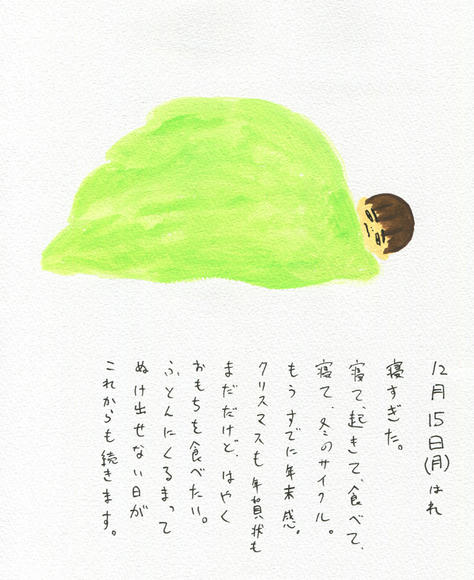 12月15日(月)はれ
寝すぎた。
寝て、起きて、食べて、
寝て、冬のサイクル。
もうすでに年末感。
クリスマスも年賀状も
まだだけど、はやく
おもちを食べたい。
ふとんにくるまって
ぬけ出せない日が
これからも続きます。